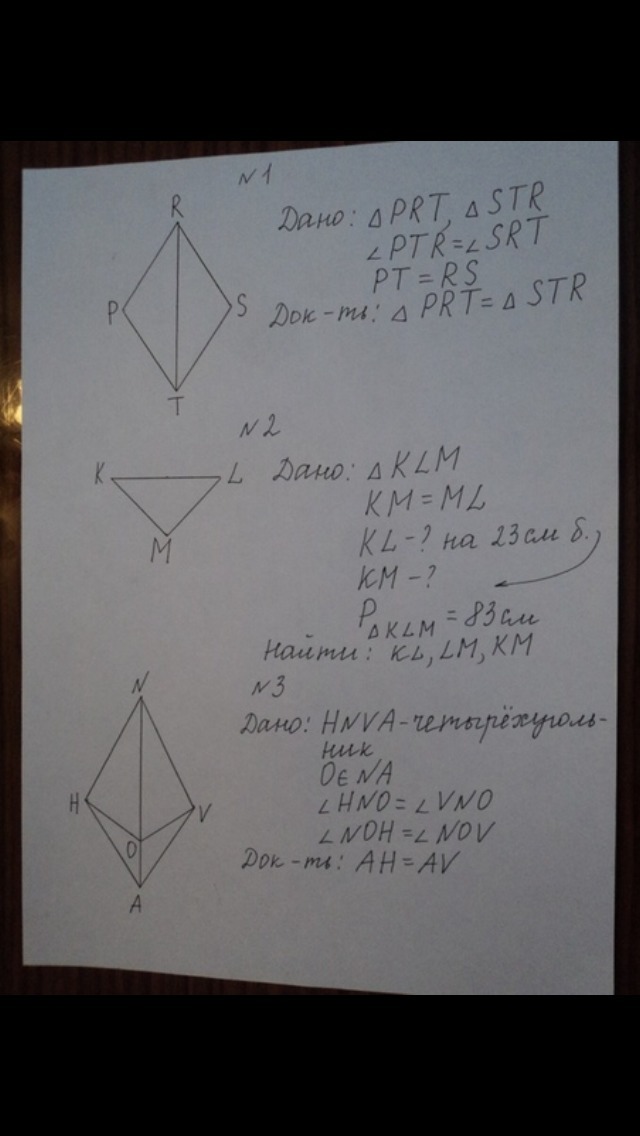 №1
R
P
S
T
Дано: △PRT, △STR
∠PTR=∠SRT
PT=RS
Док-ть: △PRT=△STR
№2
K
L
M
Дано: △KLM
KM=ML
KL-? на 23см б.
KM-?
P△KLM=83см
Найти: KL, LM, KM
№3
N
H
V
O
A
Дано: HNVA-четырёхуголь-
ник
O∈NA
∠HNO=∠VNO
∠NOH=∠NOV
Док-ть: AH=AV